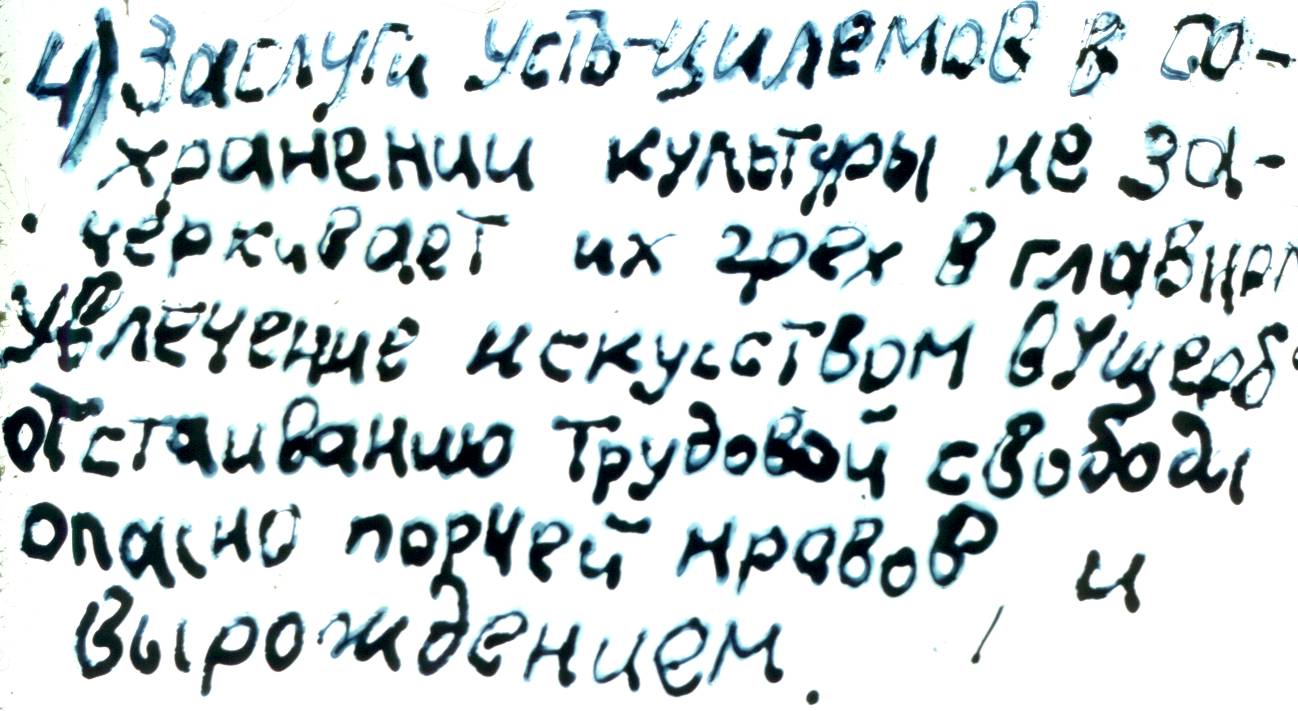 4) Заслуги Усть-цилемов в со-
хранении культуры не за-
черкивает их грех в главном
Увлечение искусством в ущерб
отстаиванию трудовой свободы
опасно порчей нравов и
вырождением.